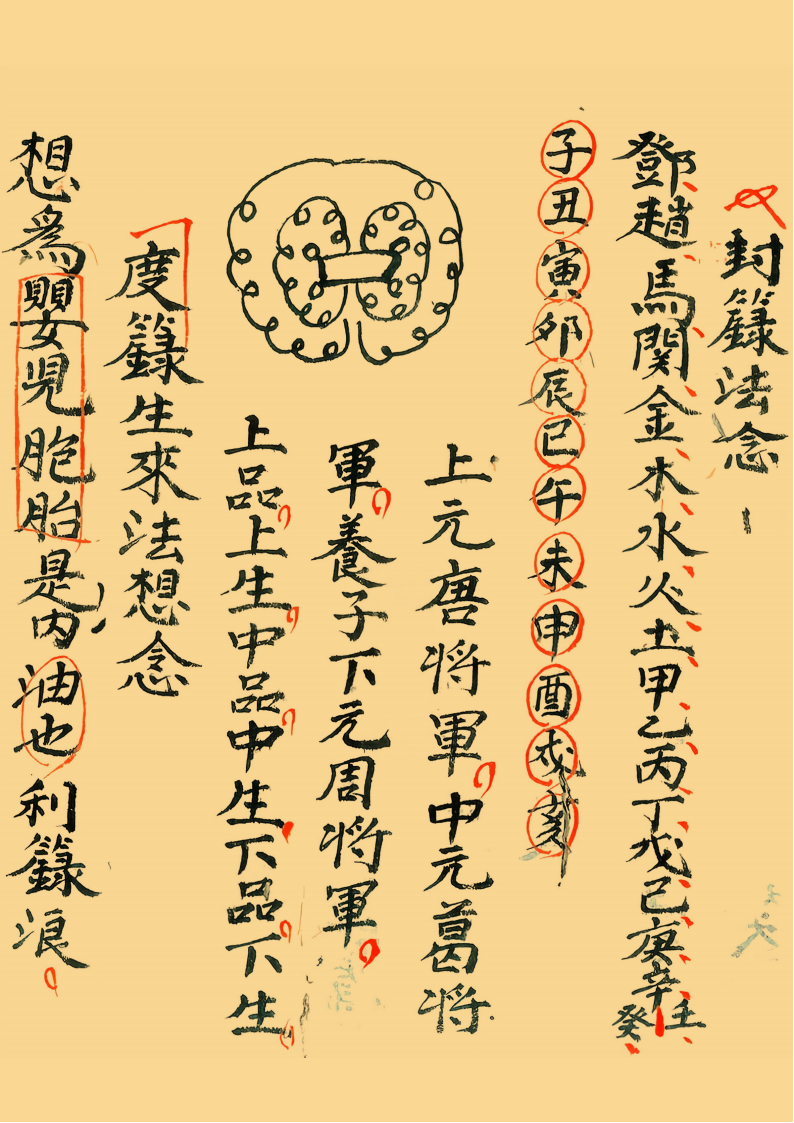 封籙法念
鄧趙馬関金木水火土甲乙丙丁戊己庚辛壬癸
子丑寅卯辰巳午未申酉戌亥
上元唐将軍中元葛将
軍養子下元周将軍
上品上生中品中生下品下生
度籙生來法想念
想為嬰児胞胎是内油也利籙浪